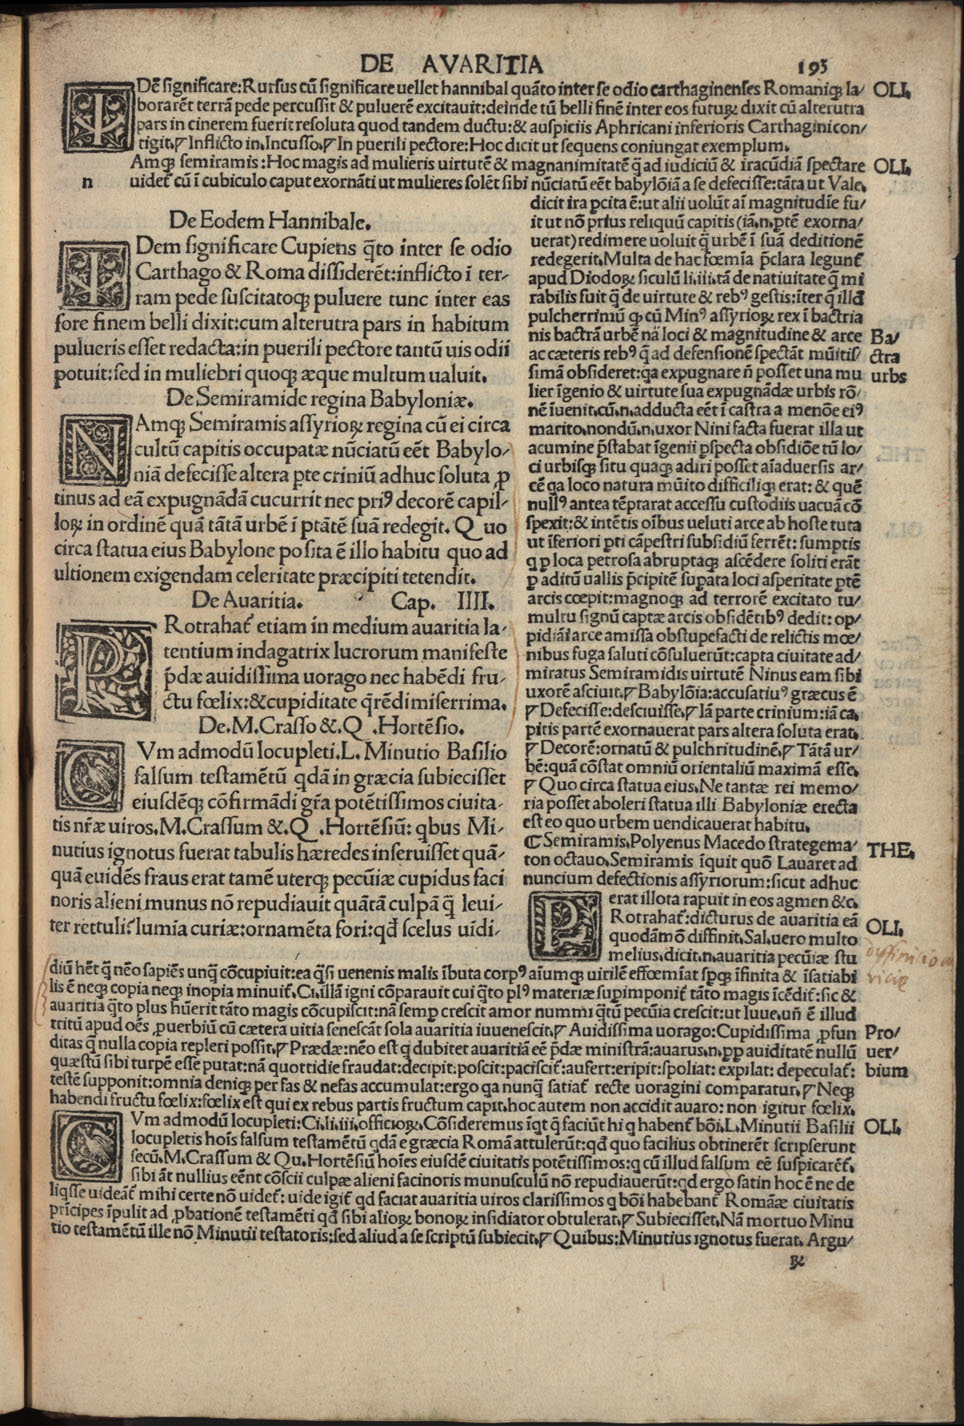 DE AVARITIA 195
IDē significare: Rursus cū significare uellet hannibal quāto inter se odio carthaginenses Romaniqꝫ la/ OLI.
borarēt terrā pede percussit & puluerē excitauit: deinde tū belli finē inter eos futuꝝ dixit cū alterutra
pars in cinerem fuerit resoluta quod tandem ductu: & auspiciis Aphricani inferioris Carthagini con/
tigit. ⸿ Inflicto in. Incusso. ⸿ In puerili pectore: Hoc dicit ut sequens coniungat exemplum.
Amqꝫ semiramis: Hoc magis ad mulieris uirtutē & magnanimitatē q̄ ad iudiciū & iracūdiā spectare OLI.
n uidet᷑ cū ī cubiculo caput exornāti ut mulieres solēt sibi nūciatū eēt babylōiā a se defecisse: tāta ut Vale.
De Eodem Hannibale.
IDem significare Cupiens q̄to inter se odio
Carthago & Roma dissiderēt: inflicto ī ter-
ram pede suscitatoqꝫ puluere tunc inter eas
fore finem belli dixit: cum alterutra pars in habitum
pulueris esset redacta: in puerili pectore tantū uis odii
potuit: sed in muliebri quoqꝫ æque multum ualuit.
De Semiramide regina Babyloniæ.
NAmqꝫ Semiramis assyrioꝝ regina cū ei circa
cultū capitis occupatæ nūciatū eēt Babylo-
niā defecisse altera ꝑte criniū adhuc soluta ꝓ
tinus ad eā expugnādā cucurrit nec priꝰ decorē capil-
loꝝ in ordinē quā tātā urbē ī ptātē suā redegit. Quo
circa statua eius Babylone posita ē illo habitu quo ad
ultionem exigendam celeritate præcipiti tetendit.
De Avaritia. Cap. IIII.
PRotrahat᷑ etiam in medium avaritia la-
tentium indagatrix lucrorum manifeste
p̄dæ auidissima uorago nec habēdi fru-
ctu fœlix: & cupiditate q̄rēdi miserrima.
De. M. Crasso & Q. Hortēsio.
CVm admodū locupleti. L. Minutio Basilio
falsum testamētū qdā in græcia subiecisset
eiusdēqꝫ cōfirmādi gr̄a potētissimos ciuita-
tis nr̄æ uiros. M. Crassum &. Q. Hortēsiū: qbus Mi-
nutius ignotus fuerat tabulis hæredes inseruisset quā-
quā euidēs fraus erat tamē uterqꝫ pecūiæ cupidus faci
noris alieni munus nō repudiauit quātā culpā q̄ leui-
ter rettuli: lumia curiæ: ornamēta fori: qd̄ scelus uīdi-
dicit ira ꝑcita ē: ut alii uolūt aī magnitudīe fu/
it ut nō prius reliquū capitis (iā. n. ꝑtē exorna/
uerat) redimere uoluit q̄ urbē ī suā deditionē
redegerit. Multa de hac fœmīa p̄clara legunt᷑
apud Diodoꝝ siculū li. iii. tā de natiuitate q̄ mi
rabilis fuit q̄ de uirtute & rebꝰ gestis: īter q̄ illd̄
pulcherrimū qꝫ cū Minꝰ assyrioꝝ rex ī bactria
nis bactrā urbē nā loci & magnitudine & arce Ba/
ac cæteris rebꝰ q̄ ad defensionē spectāt mūitis/ ctra
simā obsideret: qa expugnare n̄ posset una mu urbs
lier īgenio & uirtute sua expugnādæ urbis rō/
nē īuenit. cū. n. adducta eēt ī castra a menōe eiꝰ
marito. nondū. n. uxor Nini facta fuerat illa ut
acumine p̄stabat īgenii ꝑspecta obsidiōe tū lo/
ci urbisqꝫ situ quaqꝫ adiri posset aīaduersis ar/
cē qa loco natura mūito difficiliqꝫ erat: & quē
nullꝰ antea tēptarat accessu custodiis uacuā cō
spexit: & intētis oībus ueluti arce ab hoste tuta
ut īferiori ꝑti cāpestri subsidiū ferrēt: sumptis
q ꝑ loca petrosa abruptaqꝫ ascēdere soliti erāt
ꝑ aditū uallis p̄cipitē suꝑata loci asperitate ꝑtē
arcis cœpit: magnoqꝫ ad terrorē excitato tu/
multu signū captæ arcis obsidētibꝰ dedit: op/
pidiāī arce amissa obstupefacti de relictis mœ/
nibus fuga saluti cōsuluerūt: capta ciuitate ad/
miratus Semiramidis uirtutē Ninus eam sibi
uxorē asciuit. ⸿ Babylōia: accusatiuꝰ græcus ē
⸿ Defecisse: desciuisse. ⸿ Iā parte crinium: iā ca.
pitis partē exornauerat pars altera soluta erat.
⸿ Decorē: ornatū & pulchritudinē. ⸿ Tātā ur/
bē: quā cōstat omniū orientaliū maximā esse.
⸿ Quo circa statua eius. Ne tantæ rei memo/
ria posset aboleri statua illi Babyloniæ erecta
est eo quo urbem uendicauerat habitu.
¶ Semiramis. Polyenus Macedo strategema/ THE.
ton octauo. Semiramis īquit quō Lauaret ad
nuncium defectionis assyriorum: sicut adhuc
erat illota rapuit in eos agmen &c.
PRotrahat᷑: dicturus de avaritia eā OLI.
quodāmō diffinit. Sal. uero multo
melius. dicit. n. auaritia pecūiæ stu
diū hēt q̄ nēo sapiēs unq̄ cōcupiuit: ea q̄si uenenis malis ībuta corpꝰ aīumqꝫ uirilē effœmīat spqꝫ īfinita & īsatiabi
lis ē neqꝫ copia neqꝫ inopia minuit᷑. Ci. illā igni cōparauit cui q̄to plꝰ materiæ suꝑimponit᷑ tāto magis īcēdit᷑: sic &
auaritia q̄to plus hūerit tāto magis cōcupiscit: nā semꝑ crescit amor nummi q̄tū pecūia crescit: ut Iuue. uñ ē illud
tritū apud oēs ꝓuerbiū cū cætera uitia senescāt sola avaritia iuuenescit. ⸿ Auidissima uorago: Cupidissima ꝓfun Pro/
ditas q̄ nulla copia repleri possit. ⸿ Prædæ: nēo est q dubitet avaritiā eē p̄dæ ministrā: auarus. n. ꝓꝑ auiditatē nullū uer/
quæstū sibi turpē esse putat: nā quottidie fraudat: decipit: poscit: paciscit᷑: aufert: eripit: spoliat: expilat: depeculat᷑: bium
testē supponit: omnia deniqꝫ per fas & nefas accumulat: ergo qa nunq̄ satiat᷑ recte uoragini comparatur. ⸿ Neqꝫ
habendi fructu fœlix: fœlix est qui ex rebus partis fructum capit. hoc autem non accidit auaro: non igitur fœlix.
CVm admodū locupleti: Ci. li. iii. officioꝝ. Cōsideremus īqt q̄ faciūt hi q habent᷑ bōi. L. Minutii Basilii OLI.
locupletis hoīs falsum testamētū qdā e græcia Romā attulerūt: qd̄ quo facilius obtinerēt scripserunt
secū. M. Crassum & Qu. Hortēsiū hoīes eiusdē ciuitatis potētissimos: q cū illud falsum eē suspicarēt᷑.
sibi āt nullius eēnt cōscii culpæ alieni facinoris munusculū nō repudiauerūt: qd̄ ergo satin hoc ē ne de
liqsse uideāt᷑ mihi certe nō uidet᷑: uide igit᷑ qd̄ faciat avaritia uiros clarissimos q bōi habebant᷑ Romāæ ciuitatis
prīcipes īpulit ad ꝓbationē testamēti qd̄ sibi alioꝝ bonoꝝ insidiator obtulerat. ⸿ Subiecisset. Nā mortuo Minu
tio testamētū ille nō Minutii testatoris: sed aliud a se scriptū subiecit. ⸿ Quibus: Minutius ignotus fuerat. Argu/